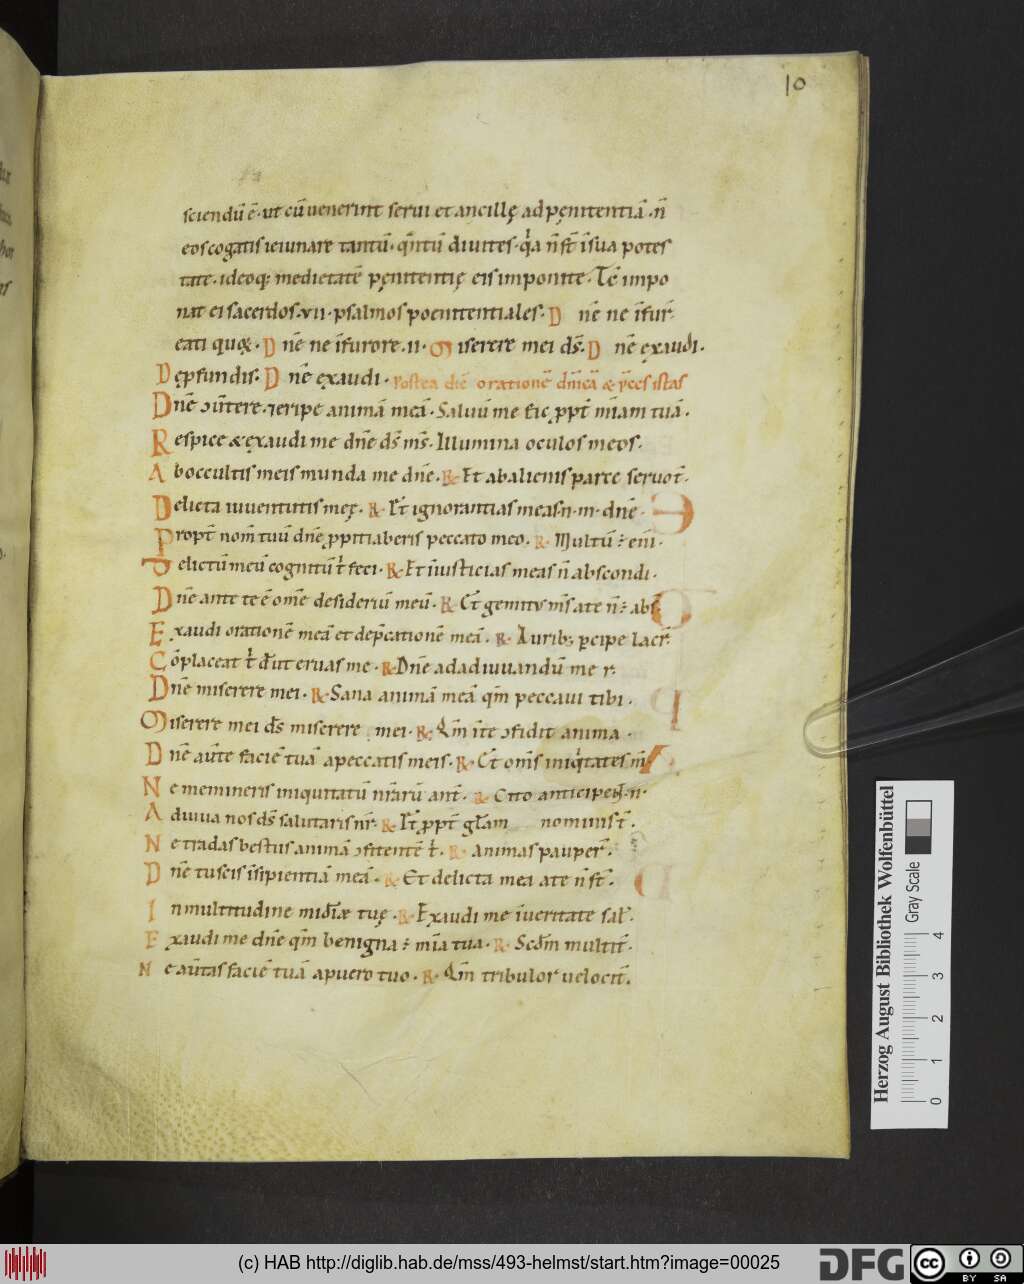 10
sciendū ē· ut cū uenerint serui et ancillę ad pęnitentiā· n̄
eos cogatis ieiunare tantū· qᷓntū diuites· qͥa n̄ st̄ ī sua potes
tate· ideoq; medietatē pęnitentię eis imponite· Tc̄ impo
nat ei sacerdos· vii· psalmos poenitentiales· D nē ne ī fur̄
eati quoꝝ· D nē ne ī furore· ii· Miserere mei ds̄· D nē exaudi·
D e ꝓfundis· D nē exaudi· Postea dic̄ orationē dn̄icā & p̄ces istas
Dn̄e ↄūtere· ⁊ eripe animā meā· Saluū me fic ꝓpt̄ m̄iam tuā·
Respice & exaudi me dn̄e ds̄ ms̄· Illumina oculos meos·
Ab occultis meis munda me dn̄e· R· Et ab alienis parce seruot̄·
Delicta iuuentutis meę· R· Et̄ ignorantias meas· n· m· dn̄e·
Propt̄ nom̄ tuū dn̄e ꝓpitiaberis peccato meo· R· Multū ÷ eni̅·
Delictū meū cognitū t̄ feci· R· Et iniusticias meas n̄ abscondi·
Dn̄e ante te ē om̄e desideriū meū· R· Et̄ gemitus ms̄ a te n̄ ÷ abs̄
Exaudi orationē meā et dep̄cationē meā· R· Aurib; ꝑcipe lacr̄·
Cōplaceat t̄ dn̄e ut eruas me· R· Dn̄e ad adiuuandū me r·
Dn̄e miserere mei· R· Sana animā meā qm̄ peccaui tibi·
Miserere mei ds̄ miserere mei· R· Qm̄ in te ↄfidit anima·
Dn̄e au̅te faciē tuā a peccatis meis· R· Et̄ om̄s iniqͥtates m̄
Ne memineris iniquitatū nr̄arū ant̄· R· Cito anticipen̄t n·
Adiuua nos ds̄ salutaris nr̄· R· Et̄ ꝓpt̄ glām nominis t̄·
Ne tradas bestiis animā ↄfitentē t̄· R· animas pauper̄·
Dn̄e tu scis īsipientiā meā· R· Et delicta mea a te n̄ st̄·
In multitudine mi̅dię tuę· R· Exaudi me ī ueritate sal̄·
Exaudi me dn̄e qm̄ benigna ÷ m̄ia tua· R· Scdm̄ multit̄·
Ne au̅tas faciē tuā a puero tuo· R· Qm̄ tribulor uelocit̄·
Herzog August Bibliothek Wolfenbüttel
Gray Scale
0 1 2 3 4
(c) HAB http://diglib.hab.de/mss/493-helmst/start.htm?image=00025
DFG
cc BY SA